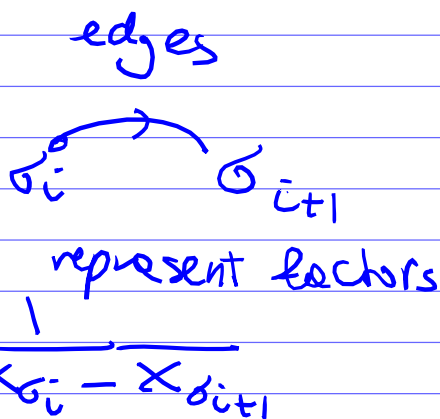 edges
σ_i → σ_{i+1}
represent factors
1
x_{σ_i} - x_{σ_{i+1}}